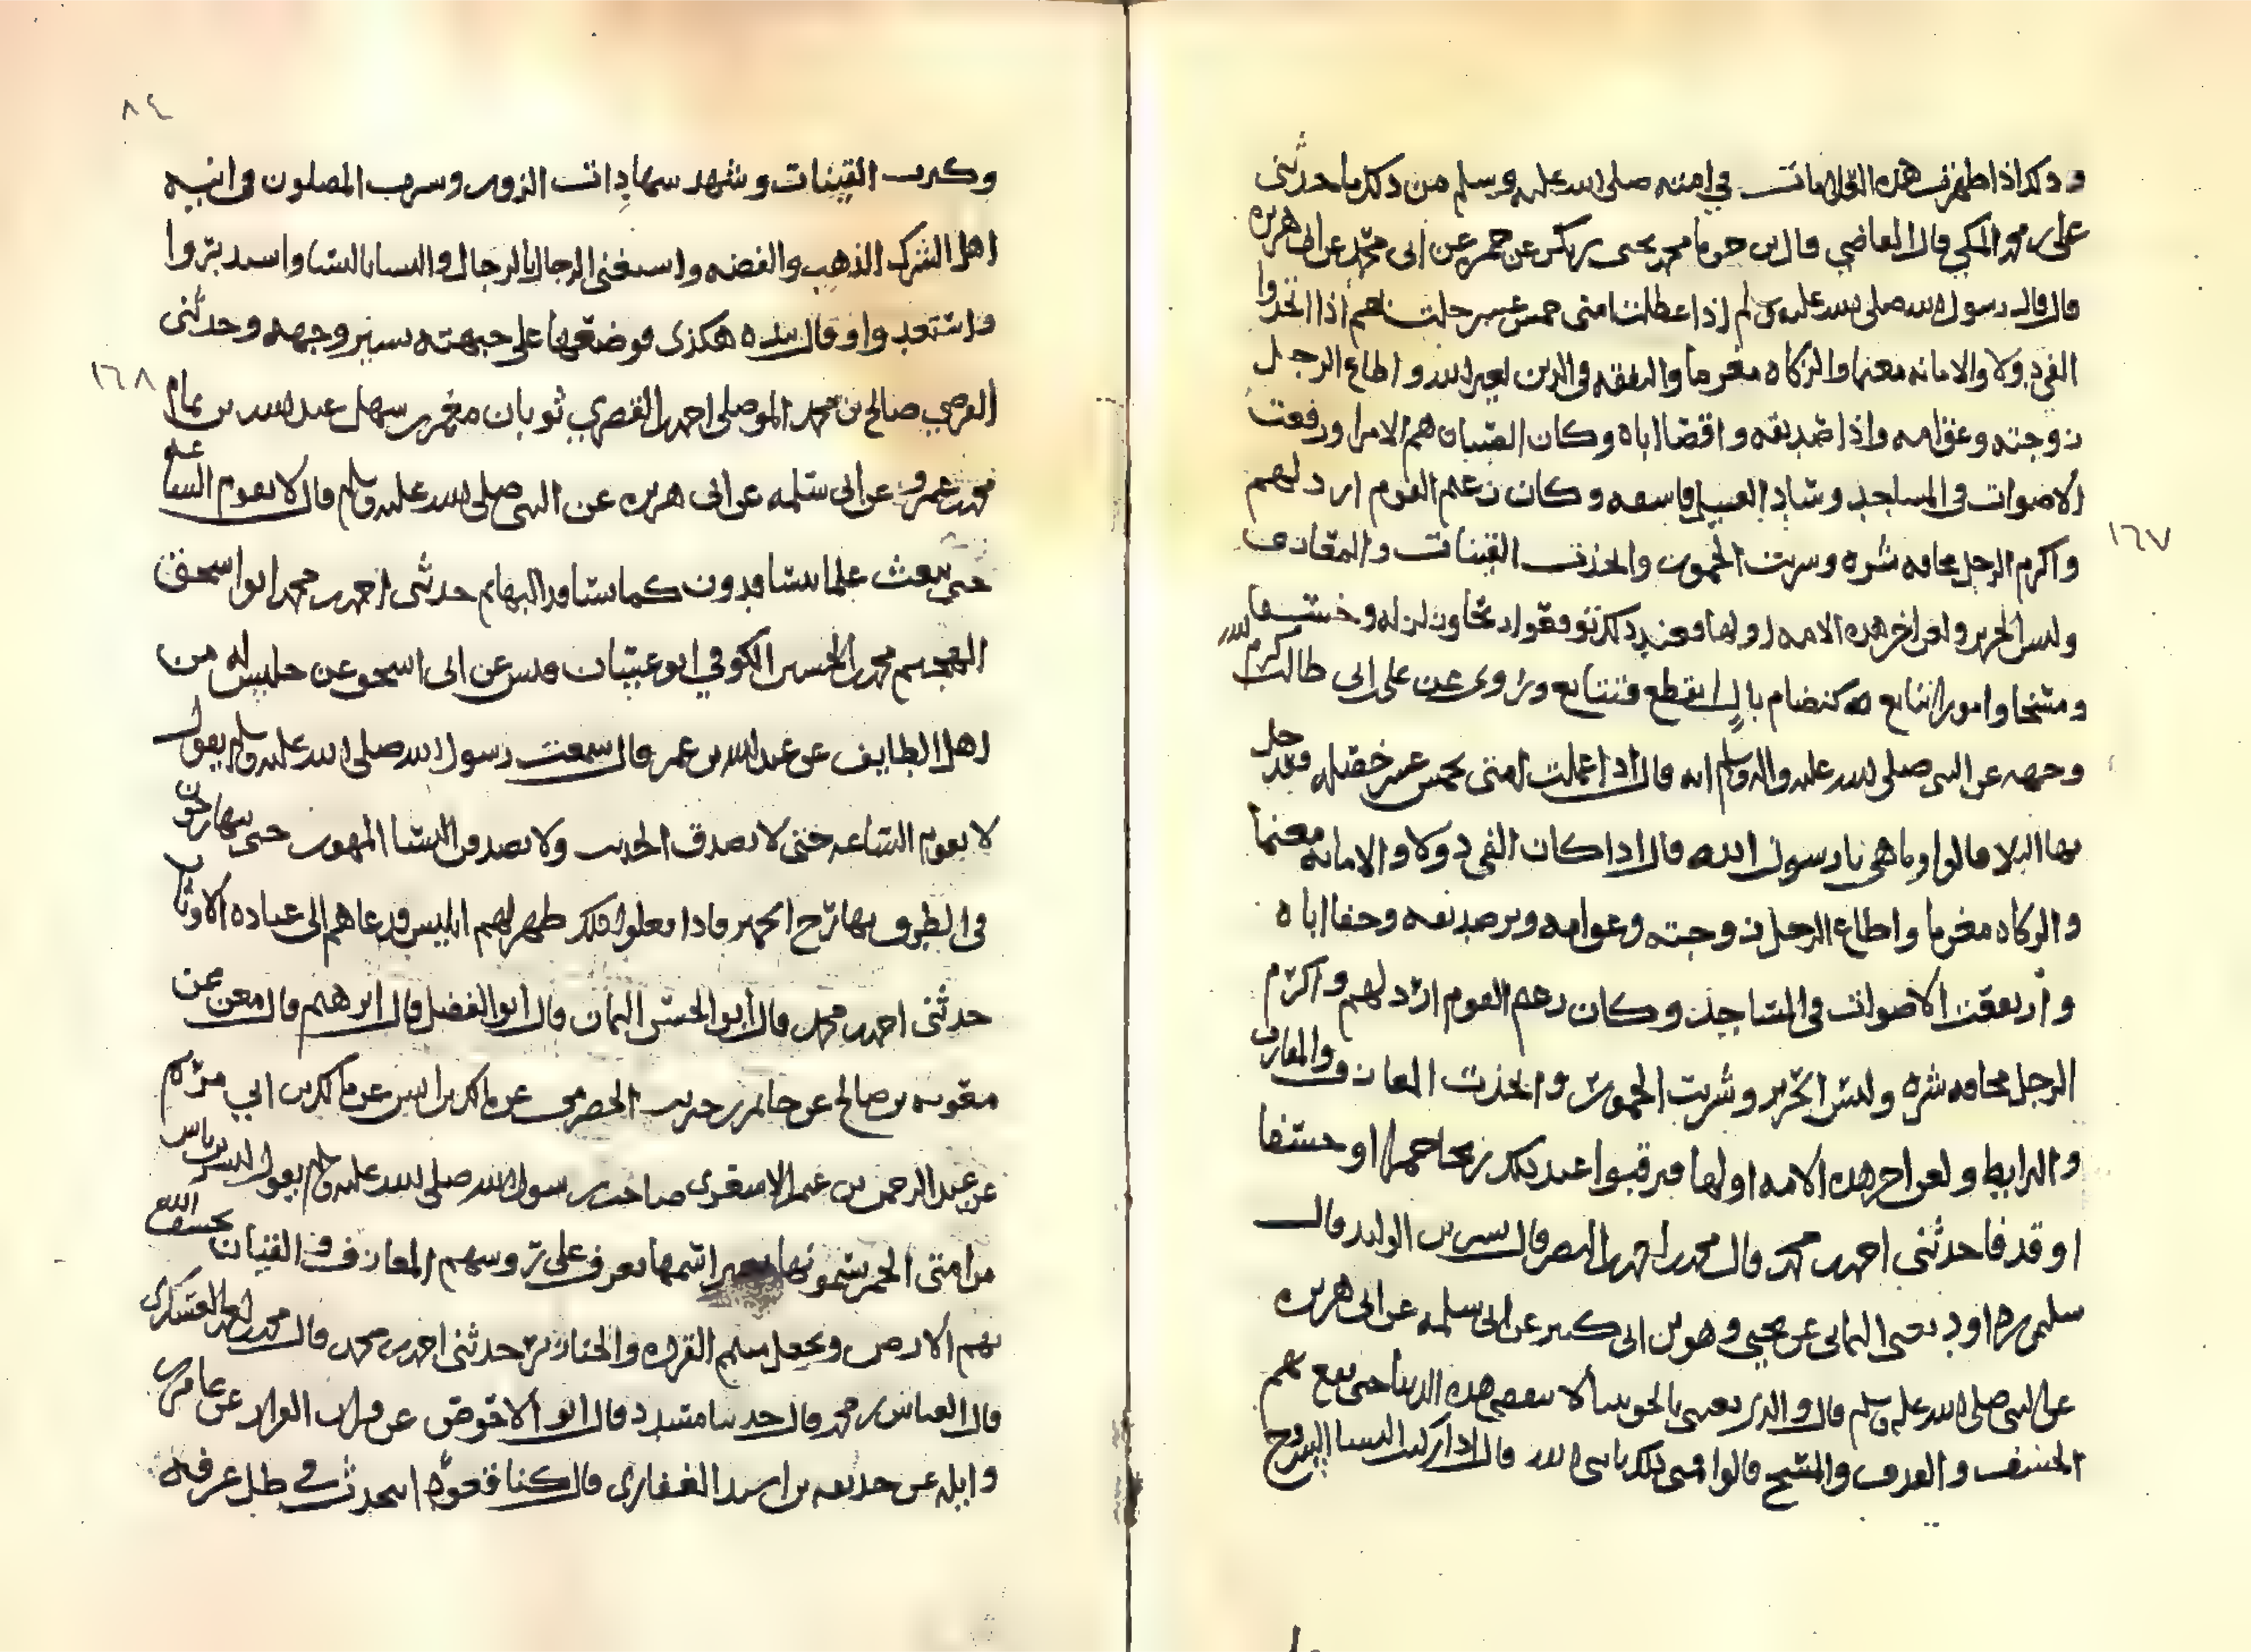 وذلك اذا ظهرت هذه العلامات في امته صلى الله عليه وسلم من ذلك ما حدثنى
على بن محمد المكي قال القاضي قال بن محمد يحيى بن عن عن ابى محمد عن ابى هريره
قال قال رسول الله صلى الله عليه وسلم اذا عملت امتى خمس عشر اذا اتخذوا
الفي دولا والامانه مغنما والزكاه مغرما والتفقه فى الدين لغير الله واطاع الرجل
زوجته وعق امه واذا صديقه واقصا اباه وكان هم الامرا ورفعت
الاصوات فى المساجد وساد القبيله فاسقه وكان زعيم القوم ارذلهم
١٦٧
واكرم الرجل مخافه شره وشربت الخمور واتخذت القينات والمعازف
ولبس الحرير ولعن اخر هذه الامه اولها فعند ذلك توقعوا وخسفا
ومسخا وامورا تتابع كنظام بال انقطع فتتابع وروى عن على بن ابى طالب كرم الله
وجهه عن النبى صلى الله عليه واله وسلم انه قال اذا عملت امتى خمس عشر خصله فقد حل
بها البلا قالوا وما هى يا رسول الله قال اذا كان الفى دولا والامانه مغنما
والزكاه مغرما واطاع الرجل زوجته وعق امه وبر صديقه وجفا اباه
وارتفعت الاصوات فى المساجد وكان زعيم القوم ارذلهم واكرم
الرجل مخافه شره ولبس الحرير وشربت الخمور واتخذت القيان والمعازف
والبرابط ولعن اخر هذه الامه اولها فترقبوا عند ذلك ريحا حمرا او خسفا
او قذفا حدثنى احمد بن محمد قال محمد بن احمد قال بن الوليد قال
سليمن بن داود يعنى اليمانى عن يحيى وهو بن ابى كثير عن ابى سلمه عن ابى هريره
عن النبى صلى الله عليه وسلم قال والذى بعثنى بالحق لا تنقضى هذه الدنيا حتى يقع بهم
الخسف والقذف والمسخ قالوا متى ذلك يا نبى الله قال اذا ركبت النسا السروج
٨٤
وكثرت القينات وشهد شهادات الزور وشرب المصلون فى انيه
اهل الشرك الذهب والفضه واستغنى الرجال بالرجال والنسا بالنسا واستدبروا
واستعدوا وقال بيده هكذى فوضعها على جبهته يستر وجهه وحدثنى
١٦٨
صالح بن محمد الموصلى احمد بن القصري ثوبان بن سهل عبد الله بن
محمد بن عمرو عن ابى سلمه عن ابى هريره عن النبى صلى الله عليه وسلم قال لا تقوم الساعه
حتى يبعث علما يتسافدون كما يتسافد البهايم حدثنى احمد بن محمد ابو اسحق
الهجيمى محمد بن الحسين الكوفي ابو قيس عن ابى اسحق عن جليس له من
اهل الطايف عن عبد الله بن عمر قال سمعت رسول الله صلى الله عليه وسلم يقول
لا تقوم الساعه حتى لا يصدق الحديث ولا يصدقن النسا المهور حتى يتهارجون
فى الطرق تهارج الحمير فاذا فعلوا ذلك ظهر لهم ابليس فدعاهم الى عباده الاوثان
حدثنى احمد بن محمد قال ابو الحسن قال ابو الفضل قال ابرهيم قال معن عن
معويه بن صالح عن حاتم بن حريث الحضرمى عن مالك بن ابى مريم
عن عبد الرحمن بن غنم الاشعرى صاحب رسول الله صلى الله عليه وسلم يقول ليشربن ناس
من امتى الخمر يسمونها بغير اسمها يعزف على روسهم المعازف والقيان يخسف الله
بهم الارض ويجعل منهم القرده والخنازير حدثنى احمد بن محمد قال محمد بن احمد العسكرى
قال العباس بن محمد قال حدثنا مسدد قال ابو الاحوص عن فرات القزاز عن عامر بن
واثله عن حذيفه بن اسيد الغفارى قال كنا قعودا نتحدث في ظل غرفه